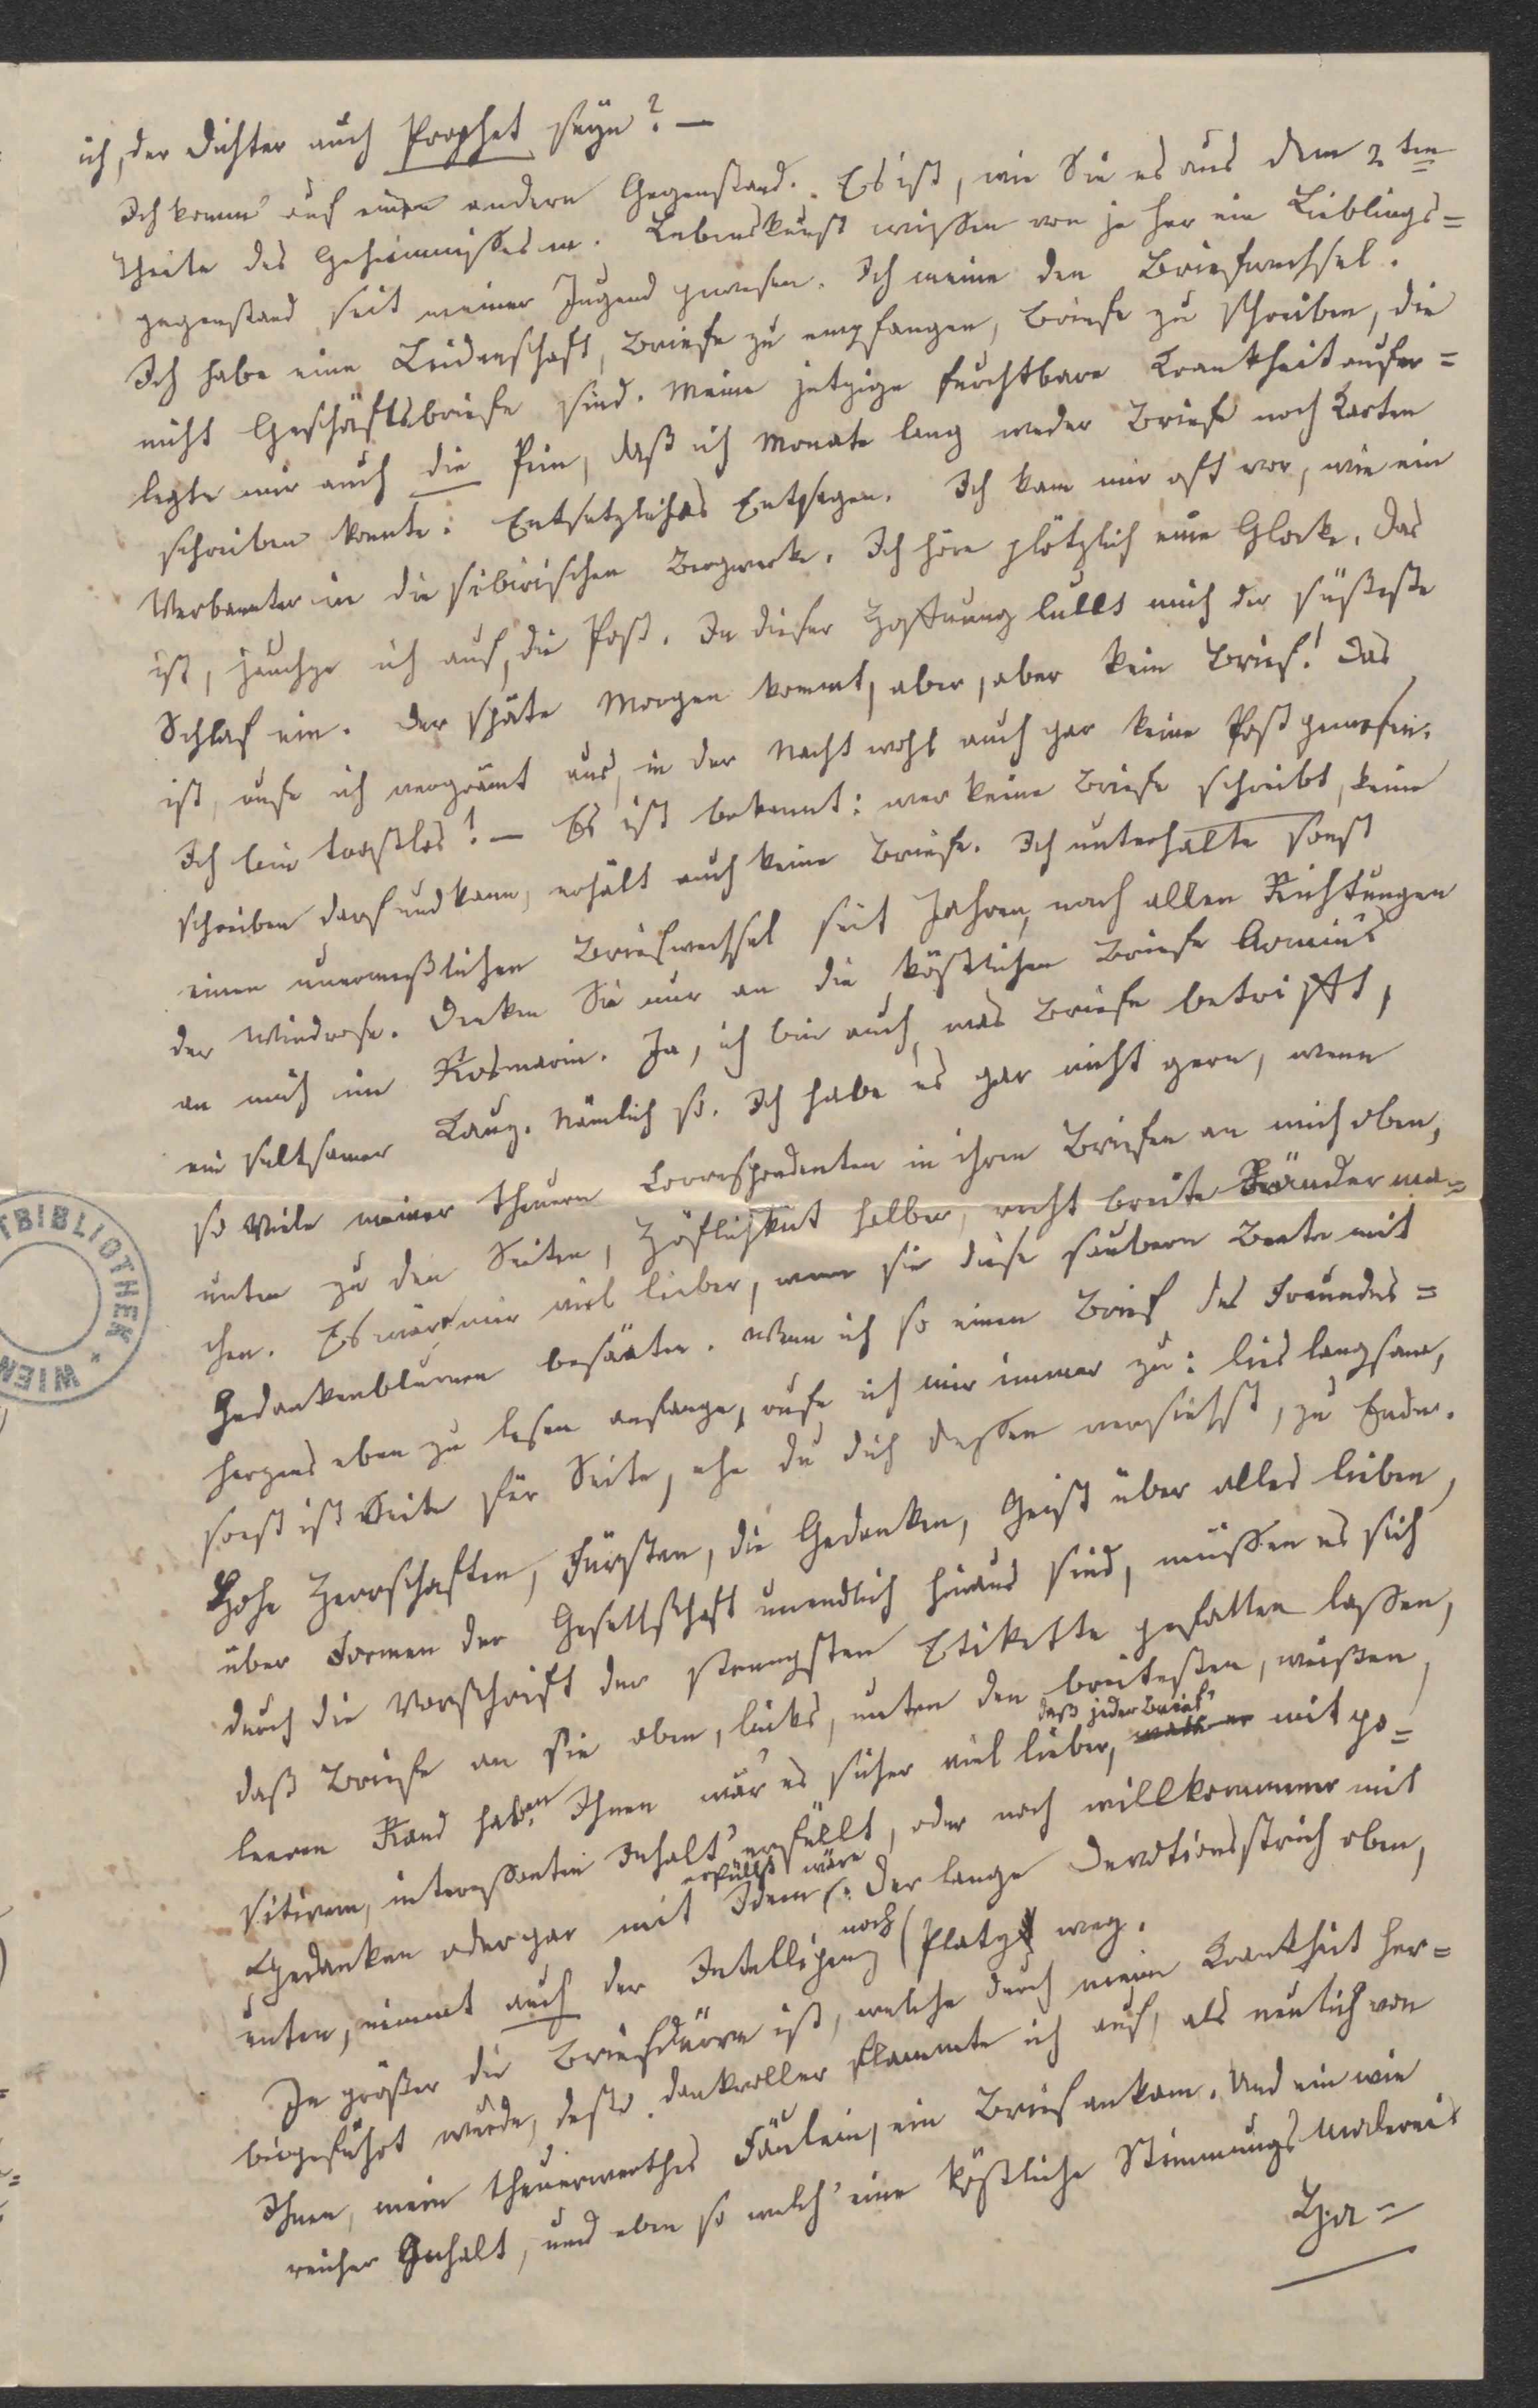 ich, der Dichter auch Prophet seyn? —
Ich komm' auf einen andern Gegenstand. Es ist, wie Sie es aus dem 2 ten
Theile des Geheimnisses m. Lebenskunst wissen von je her ein Lieblings=
gegenstand seit meiner Jugend gewesen. Ich meine den Briefwechsel.
Ich habe eine Leidenschaft, Briefe zu empfangen, Briefe zu schreiben, die
nicht Geschäftsbriefe sind. Meine jetzige furchtbare Krankheit aufer=
legte mir auch die Pein, daß ich Monate lang weder Briefe noch Karten
schreiben konnte. Entsetzliches Entsagen. Ich kam mir oft vor, wie ein
Verbannter in die sibirischen Bergwerke. Ich höre plötzlich eine Glocke. Das
ist, jauchze ich auf, die Post. In dieser Hoffnung lullt mich der süßeste
Schlaf ein. Der späte Morgen kommt, aber, aber kein Brief! Das
ist, rufe ich vergrämt aus, in der Nacht wohl auch gar keine Post gewesen.
Ich bin trostlos! — Es ist bekannt: wer keine Briefe schreibt, keine
schreiben darf und kann, erhält auch keine Briefe. Ich unterhalte sonst
einen unermeßlichen Briefwechsel seit Jahren, nach allen Richtungen
der Windrose. Denken Sie nur an die köstlichen Briefe Armins
an mich im Rosmarin. Ja, ich bin auch, was Briefe betrifft,
ein seltsamer Kauz. Nämlich so. Ich habe es gar nicht gern, wenn
so viele meiner theuern Correspondenten in ihren Briefen an mich oben,
unten zu den Seiten, Höflichkeit halber, recht breite Ränder ma=
chen. Es wäre mir viel lieber, wenn sie diese saubern Beete mit
Gedankenblumen besäeten. Wenn ich so einen Brief des Freundes=
herzens eben zu lesen anfange, rufe ich mir immer zu: lies langsam,
sonst ist Seite für Seite, ehe du dich dessen versiehst, zu Ende.
Hohe Herrschaften, Fürsten, die Gedanken, Geist über alles lieben,
über Formen der Gesellschaft unendlich hinaus sind, müssen es sich
durch die Vorschrift der strengsten Etikette gefallen lassen,
daß Briefe an sie oben, links, unten den breitesten, weißen,
leeren Rand haben. Ihnen wär' es sicher viel lieber, daß jeder Brief mit po=
sitivem, interessanten Inhalt erfüllt, oder noch willkommner mit
Gedanken oder gar mit Ideen erfüllt wäre. Der lange Devotionsstrich oben,
unten, nimmt auch der Intelligenz noch Platz weg.
Je größer die Briefdürre ist, welche durch meine Krankheit her=
beigeführt wurde, desto dankvoller flammte ich auf, als neulich von
Ihnen, mein theuerwerthes Fräulein, ein Brief ankam. Und ein wie
reicher Inhalt, und eben so welch' eine köstliche Stimmungsmalerei!